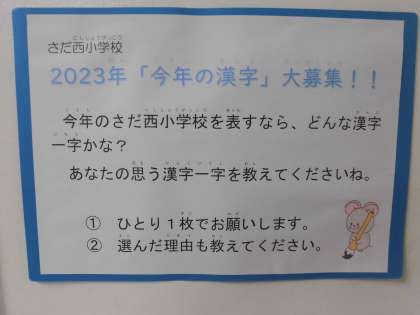 さだ西小学校
2023年「今年の漢字」大募集！！
今年のさだ西小学校を表すなら、どんな漢字
一字かな？
あなたの思う漢字一字を教えてくださいね。
① ひとり１枚でお願いします。
② 選んだ理由も教えてください。